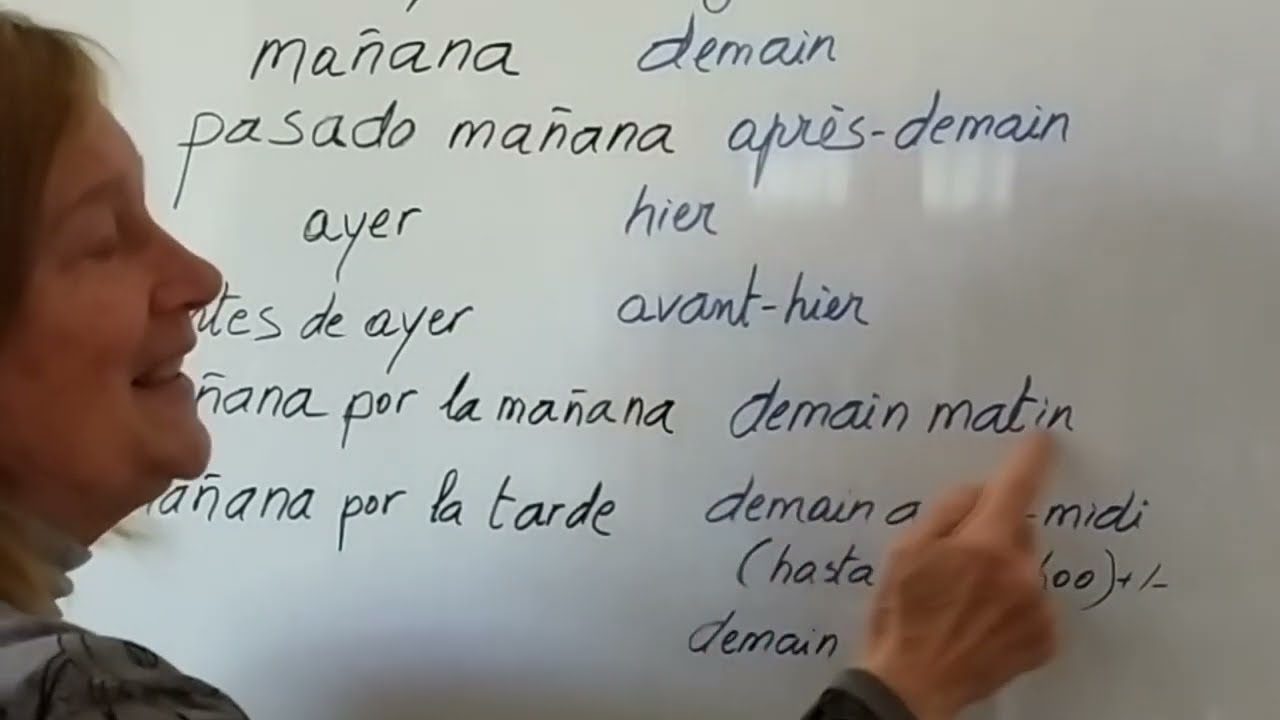 mañana demain
pasado mañana après-demain
ayer hier
de ayer avant-hier
por la mañana demain matin
por la tarde demain -midi
(hasta 00) +/-
demain